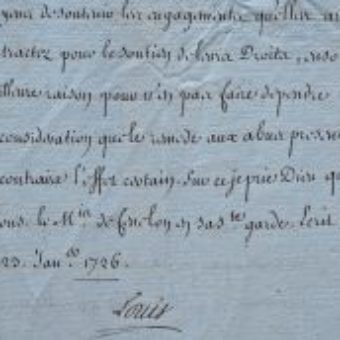 de soutenir les engagements qu'elles
tractez pour le soutien de leurs Droits,
raison pour n'en pas faire dependre
consideration que le remede aux abus
contraire l'effet certain. Sur ce je prie Dieu
le M.is de en sa s.te garde. Ecrit
23. Jan.er 1726.
Louis